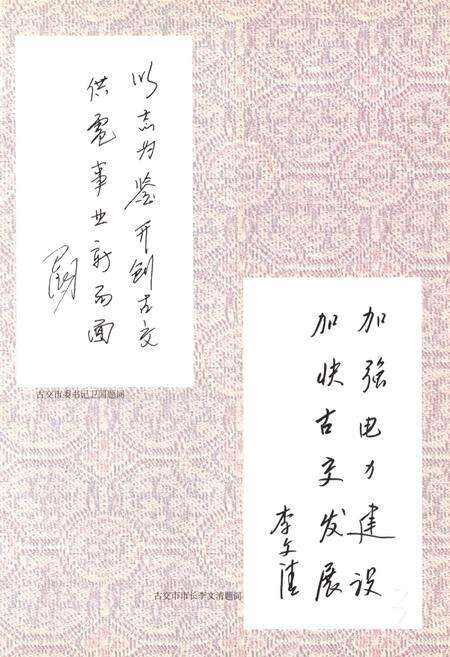 以志为鉴开创古交
供電事业新局面
古交市委书记卫国题词
加强电力建设
加快古交发展
李文清
古交市市长李文清题词